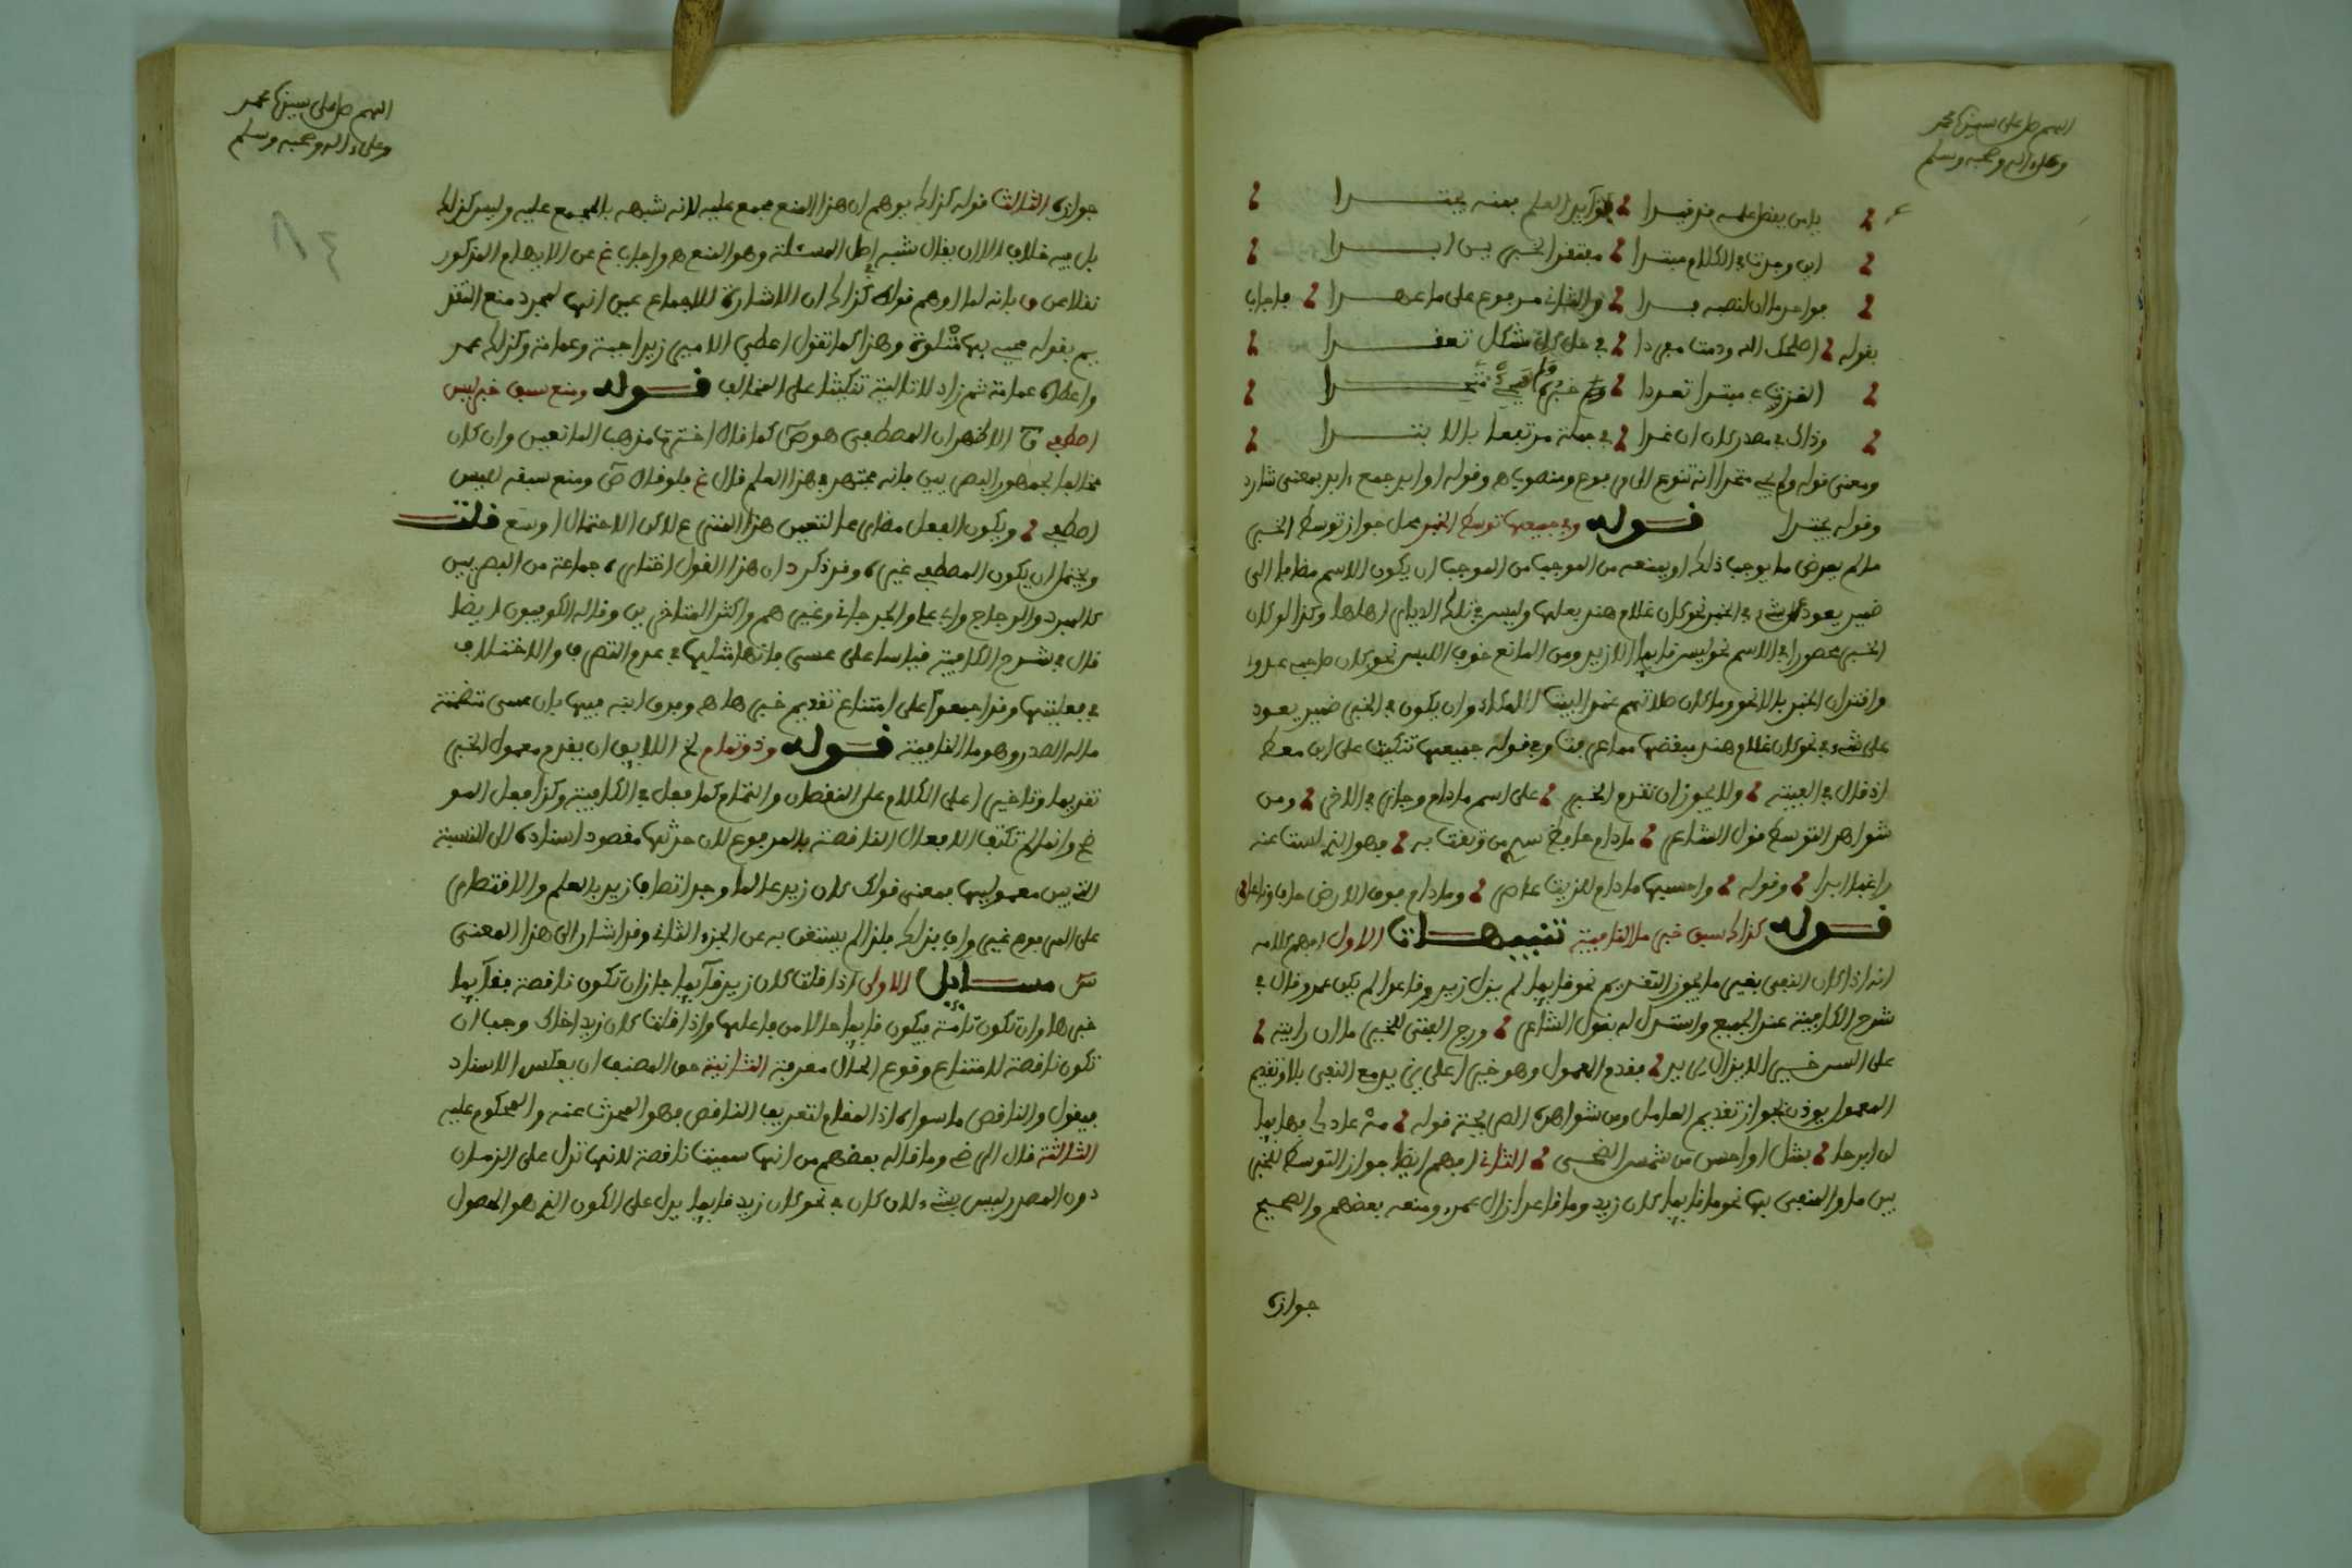 اللهم صل على سيدنا محمد
وعلى ءاله وصحبه وسلم
يا من بفضل علمه قد قيدا فوايد العلم بعنه يجتدا
اين وجدت في الكلام مبتدا مفتقر الخبر بين ابدا
بواحد ما ان لنصبه بدا والثان مرفوع على ما عهدا فاجاب
بقوله اصلحك الله ودمت مفردا في حل كل مشكل تعقدا
القرنى مبتدا تعودا
وذاك في مصدر كان ان غدا في جملة مرتبطا بالابتدا
ومعنى قوله ولم يجي متحدا انه تنوع الى مرفوع ومنصوب اه وقوله اوابد جمع ءابد بمعنى شارد
وقوله يجتدا قوله وفي جميعها توسط الخبر محل جواز توسط الخبر
ما لم يعرض ما يوجب ذلك او يمنعه من الموجب من الموجب ان يكون الاسم مضافا الى
ضمير يعود على شيء في الخبر نحو كان غلام هند بعلها وليس في تلك الديار اهلها وكذا لو كان
الخبر محصورا في الاسم نحو ليس قايما الا زيد ومن المانع خوف اللبس نحو كان صاحبي عدوي
واقتران الخبر بالا نحو وما كان صلاتهم عند البيت الا مكاء وان يكون في الخبر ضمير يعود
على شيء في نحو كان غلام هند مبغضها مما عرفت وفي قوله جميعها تنكيت على ابن معط
اذ قال في الفيته ولا يجوز ان تقدم الخبر على اسم ما دام وجاز في الاخر ومن
شواهد التوسط قول الشاعر ما دام حافظ سري من وثقت به فهو الذي لست عنه
راغبا ابدا وقوله واحسبها ما دام للزيت عاصر وما دام فوق الارض حاف وناعل
قوله كذاك سبق خبر ما النافية تنبيهات الاول افهم كلامه
انه اذا كان النفي بغير ما يجوز التقديم نحو قايما لم يزل زيد وقاعدا لم يكن عمرو قال في
شرح الكافية عند الجميع واستدل له بقول الشاعر ورج الفتى للخير ما ان رايته
على السن خيرا لا يزال يزيد فقدم المعمول وهو خيرا على يزيد مع النفي بلا وتقديم
المعمول يوذن بجواز تقديم العامل ومن شواهده الصريحة قوله مه عاذلي فهايما
لن ابرحا بمثل او احسن من شمس الضحى الثاني افهم ايضا جواز التوسط للخبر
بين ما والمنفي بها نحو ما قايما كان زيد وما قاعدا زال عمرو ومنعه بعضهم والصحيح
جوازه
اللهم صل على سيدنا محمد
وعلى ءاله وصحبه وسلم
جوازه الثالث قوله كذاك يوهم ان هذا المنع مجمع عليه لانه شبهه بالمجمع عليه وليس كذلك
بل فيه خلاف الا ان يقال شبه اصل المسئلة وهو المنع اه واجاب غ عن الايهام المذكور
نقلا عن ق بانه لما اوهم قولك كذاك ان الاشارة للاجماع عين انها لمجرد منع التقد
يم بقوله فجي بها متلوة وهذا كما تقول اعطى الامير زيدا جبة وعمامة وكذلك عمر
واعطاه عمامة ثم زاد لا تالية تنكيتا على المخالف قوله ومنع سبق خبر ليس
اصطفي ق الاظهر ان المصطفي هو ص كما قال اخترت مذهب المانعين وان كان
مخالفا لجمهور البصريين فانه مجتهد في هذا العلم قال غ فلو قال ص ومنع سبقه لليس
اصطفي ويكون الفعل مضارعا لتعين هذا المنزع لاكن الاحتمال اوسع قلت
ويحتمل ان يكون المصطفي غيره وقد ذكر د ان هذا القول اختاره جماعة من البصريين
كالمبرد والزجاج وابي علي والجرجاني وغيرهم واكثر المتاخرين وقاله الكوفيون ايضا
قال في شرح الكافية قياسا على عسى فانها مثلها في عدم التصرف والاختلاف
في فعليتها وقد اجمعوا على امتناع تقديم خبرها اه وفرق ابنه بينها بان عسى متضمنة
ما له الصدر وهو ما النافية قوله وذو تمام لخ اللايق ان يقدم معمول الخبر
تقديما وتاخيرا على الكلام على النقصان والتمام كما فعل في الكافية وكذا فعل المو
ضح وانما لم تكتف الافعال الناقصة بالمرفوع لان حدثها مقصود اسناده الى النسبة
التي بين معموليها فمعنى قولك كان زيد عالما وجد اتصاف زيد بالعلم والاقتصار
على المرفوع غير واف بذلك فلذا لم يستغن به عن الجزء الثاني وقد اشار الى هذا المعنى
س مسايل الاولى اذا قلت كان زيد قآيما جاز ان تكون ناقصة فقآيما
خبرها وان تكون تآمة فيكون قايما حالا من فاعلها واذا قلت كان زيد اخاك وجب ان
تكون ناقصة لامتناع وقوع الحال معرفة الثانية حق المصنف ان يعكس الاسناد
فيقول والناقص ما سواه اذ المقام لتعريف الناقص فهو المحدث عنه والمحكوم عليه
الثالثة قال الرضي وما قاله بعضهم من انها سميت ناقصة لانها تدل على الزمان
دون المصدر ليس بشيء لان كان في نحو كان زيد قايما يدل على الكون الذي هو الحصول